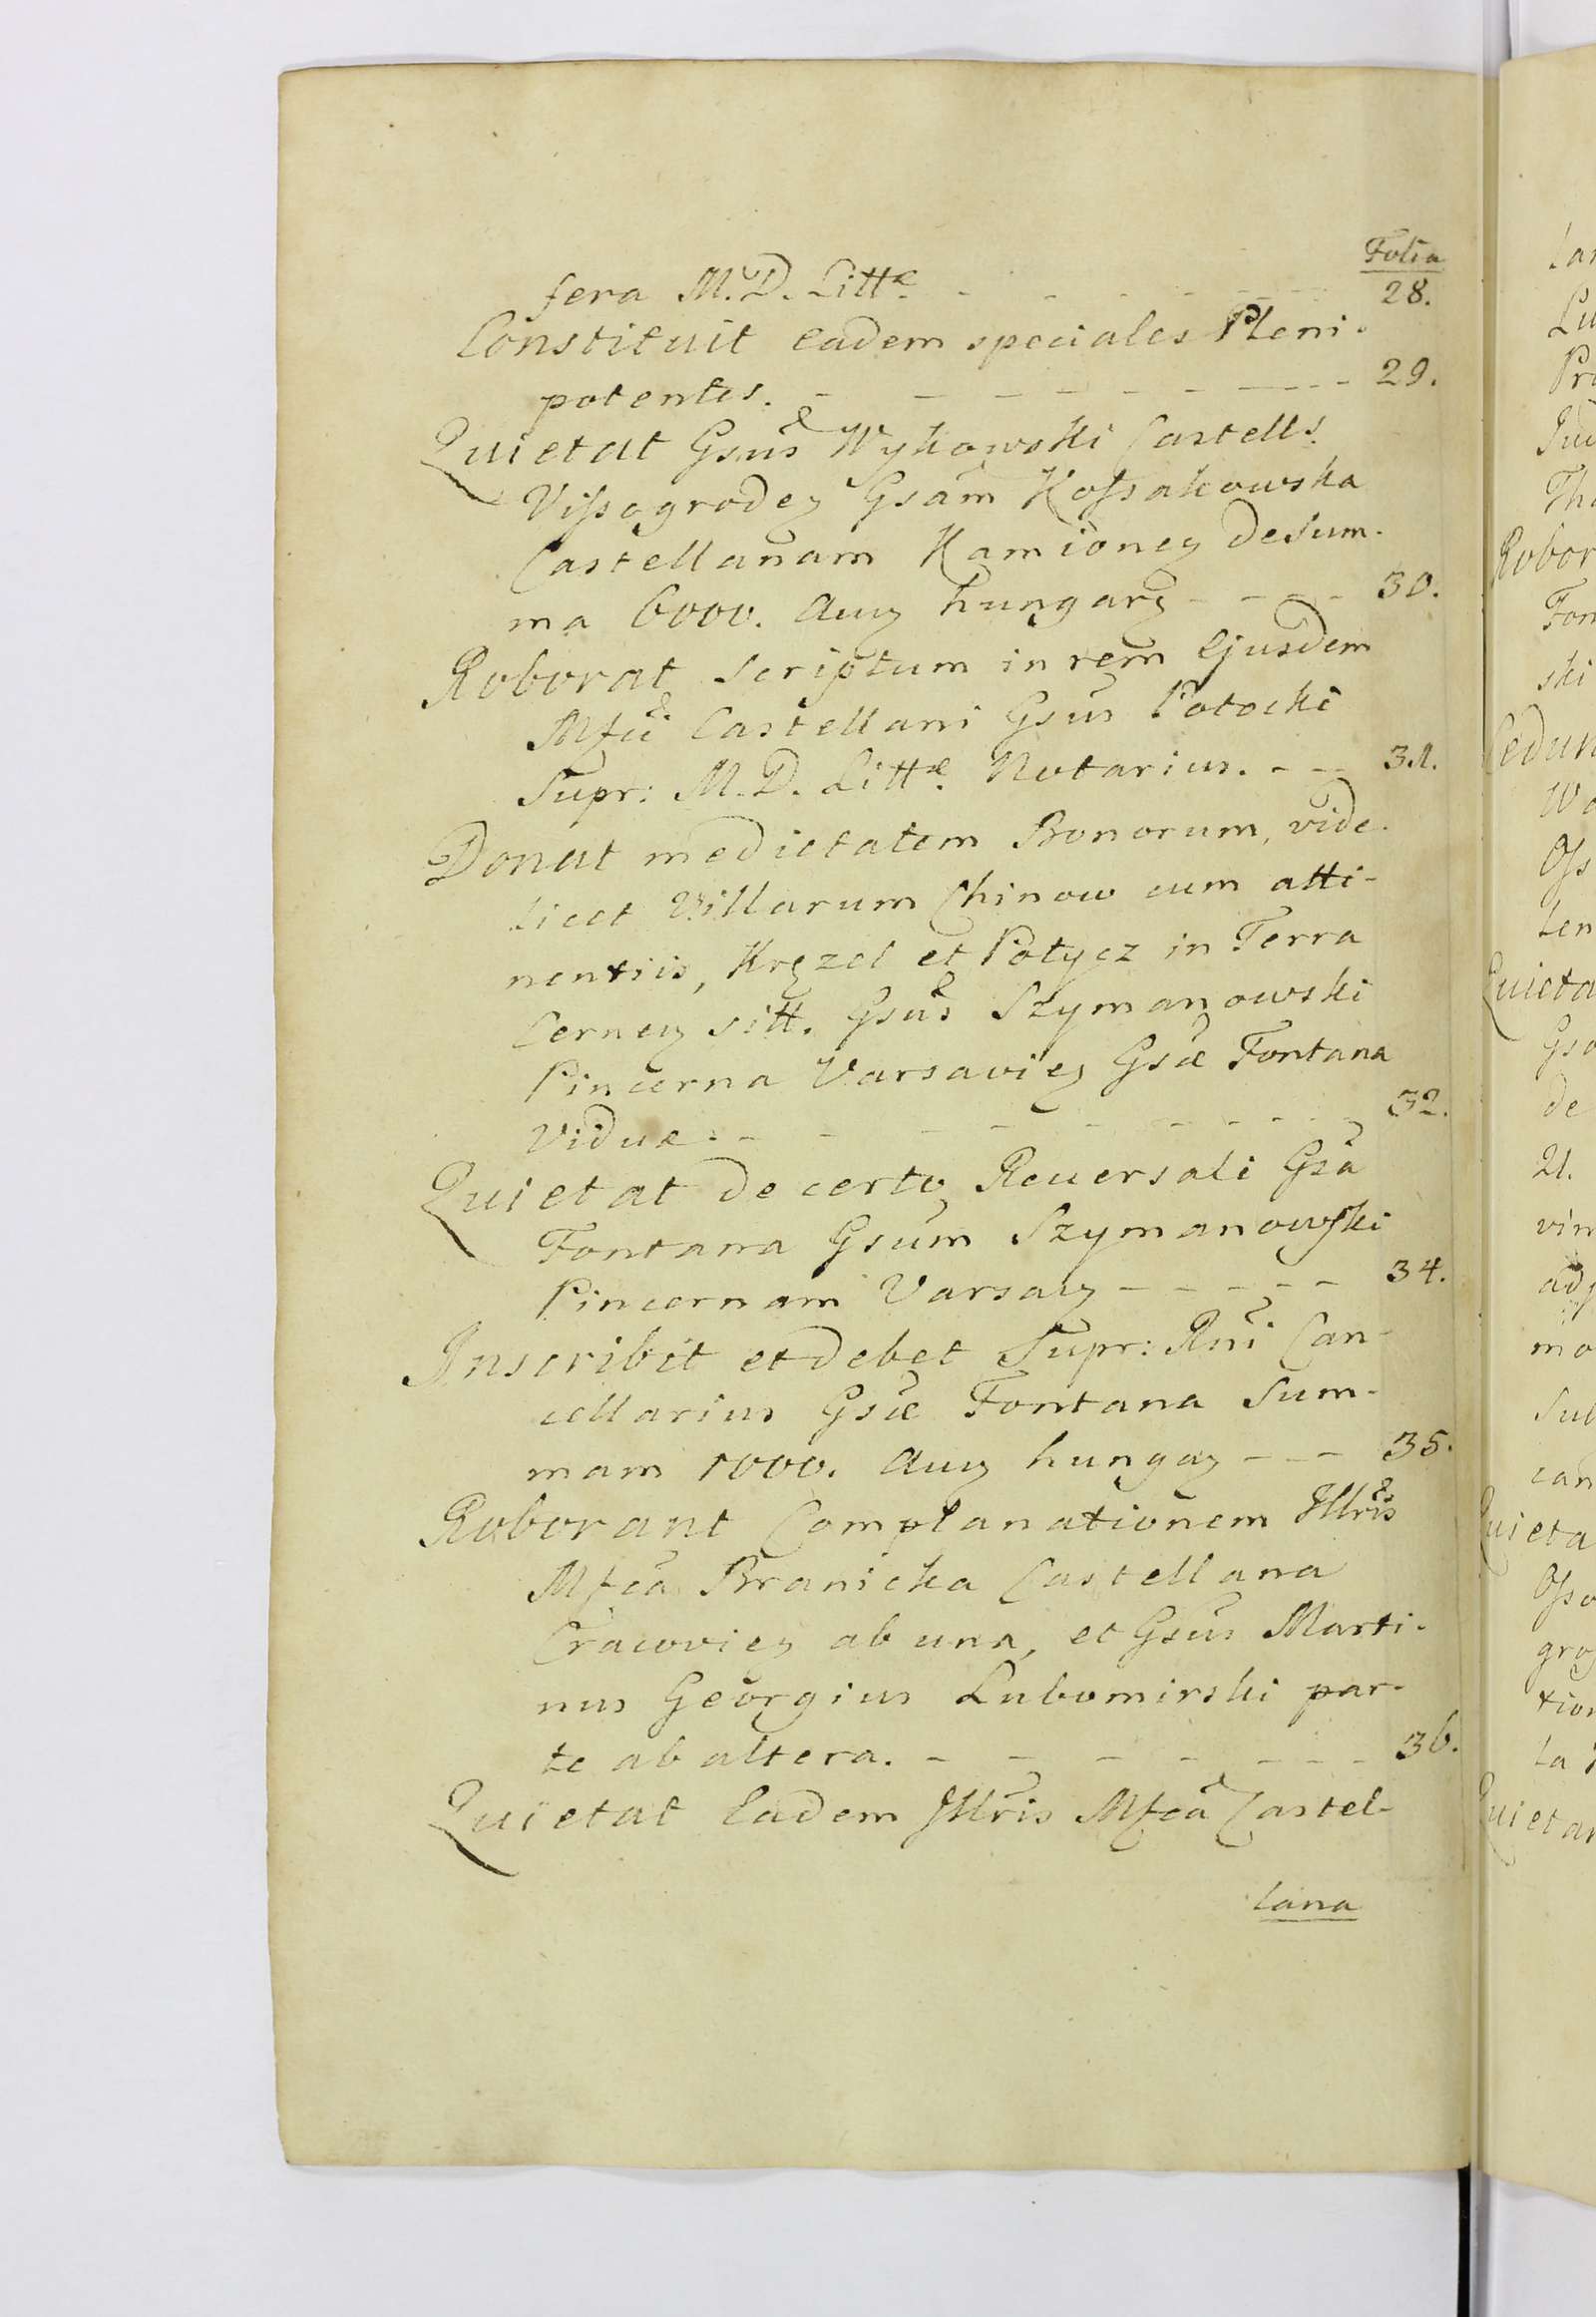 Folia
fera M.D. Littæ. - - - - - - - 28.
Constituit eadem speciales Pleni-
potentes. - - - - - - - - 29.
Quietat Gsus Wykowski Castells.
Vissogrodey Gsam Kossakowska
Castellanam Kamioney de sum-
ma 6000. auy hungary - - - - 30.
Roborat scriptum in rem ejusdem
Mfci Castellani Gsus Potocki
Supr: M.D. Littæ. Notarius. - - - 31.
Donat medietatem Bonorum, vide-
licet Villarum Chinow cum atti-
nentiis, Kręzel et Potycz in Terra
Cerney sitt. Gsus Szymanowski
Pincerna Varsaviey Gsæ Fontana
Viduæ. - - - - - - - - - 32.
Quietat de certo Reversali Gsa
Fontana Gsum Szymanowski
Pincernam Varsavy - - - - - 34.
Inscribit et debet Supr: Rni Can-
cellarius Gsæ Fontana Sum-
mam 1000. auy hungay - - - 35.
Roborant Complanationem Illris
Mfca Branicka Castellana
Cracoviey ab una, et Gsus Marti-
nus Georgius Lubomirski par-
te ab altera. - - - - - - - - 36.
Quietat Eadem Illris Mfca Castel-
lana
Robor
ski
de
21.